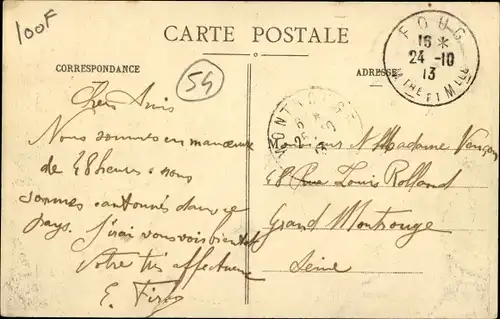 100F
CARTE POSTALE
CORRESPONDANCE
ADRESSE
54
FOUG
16 *
24 -10
13
MTHE ET MLLE
MONTROUGE
Chers Amis
Nous sommes en manœuvre
de 48 heures nous
sommes cantonnés dans ce
pays. J'irai vous voir bientôt
Votre très affectueux
E.
Monsieur & Madame
48 Rue Louis Rolland
Grand Montrouge
Seine